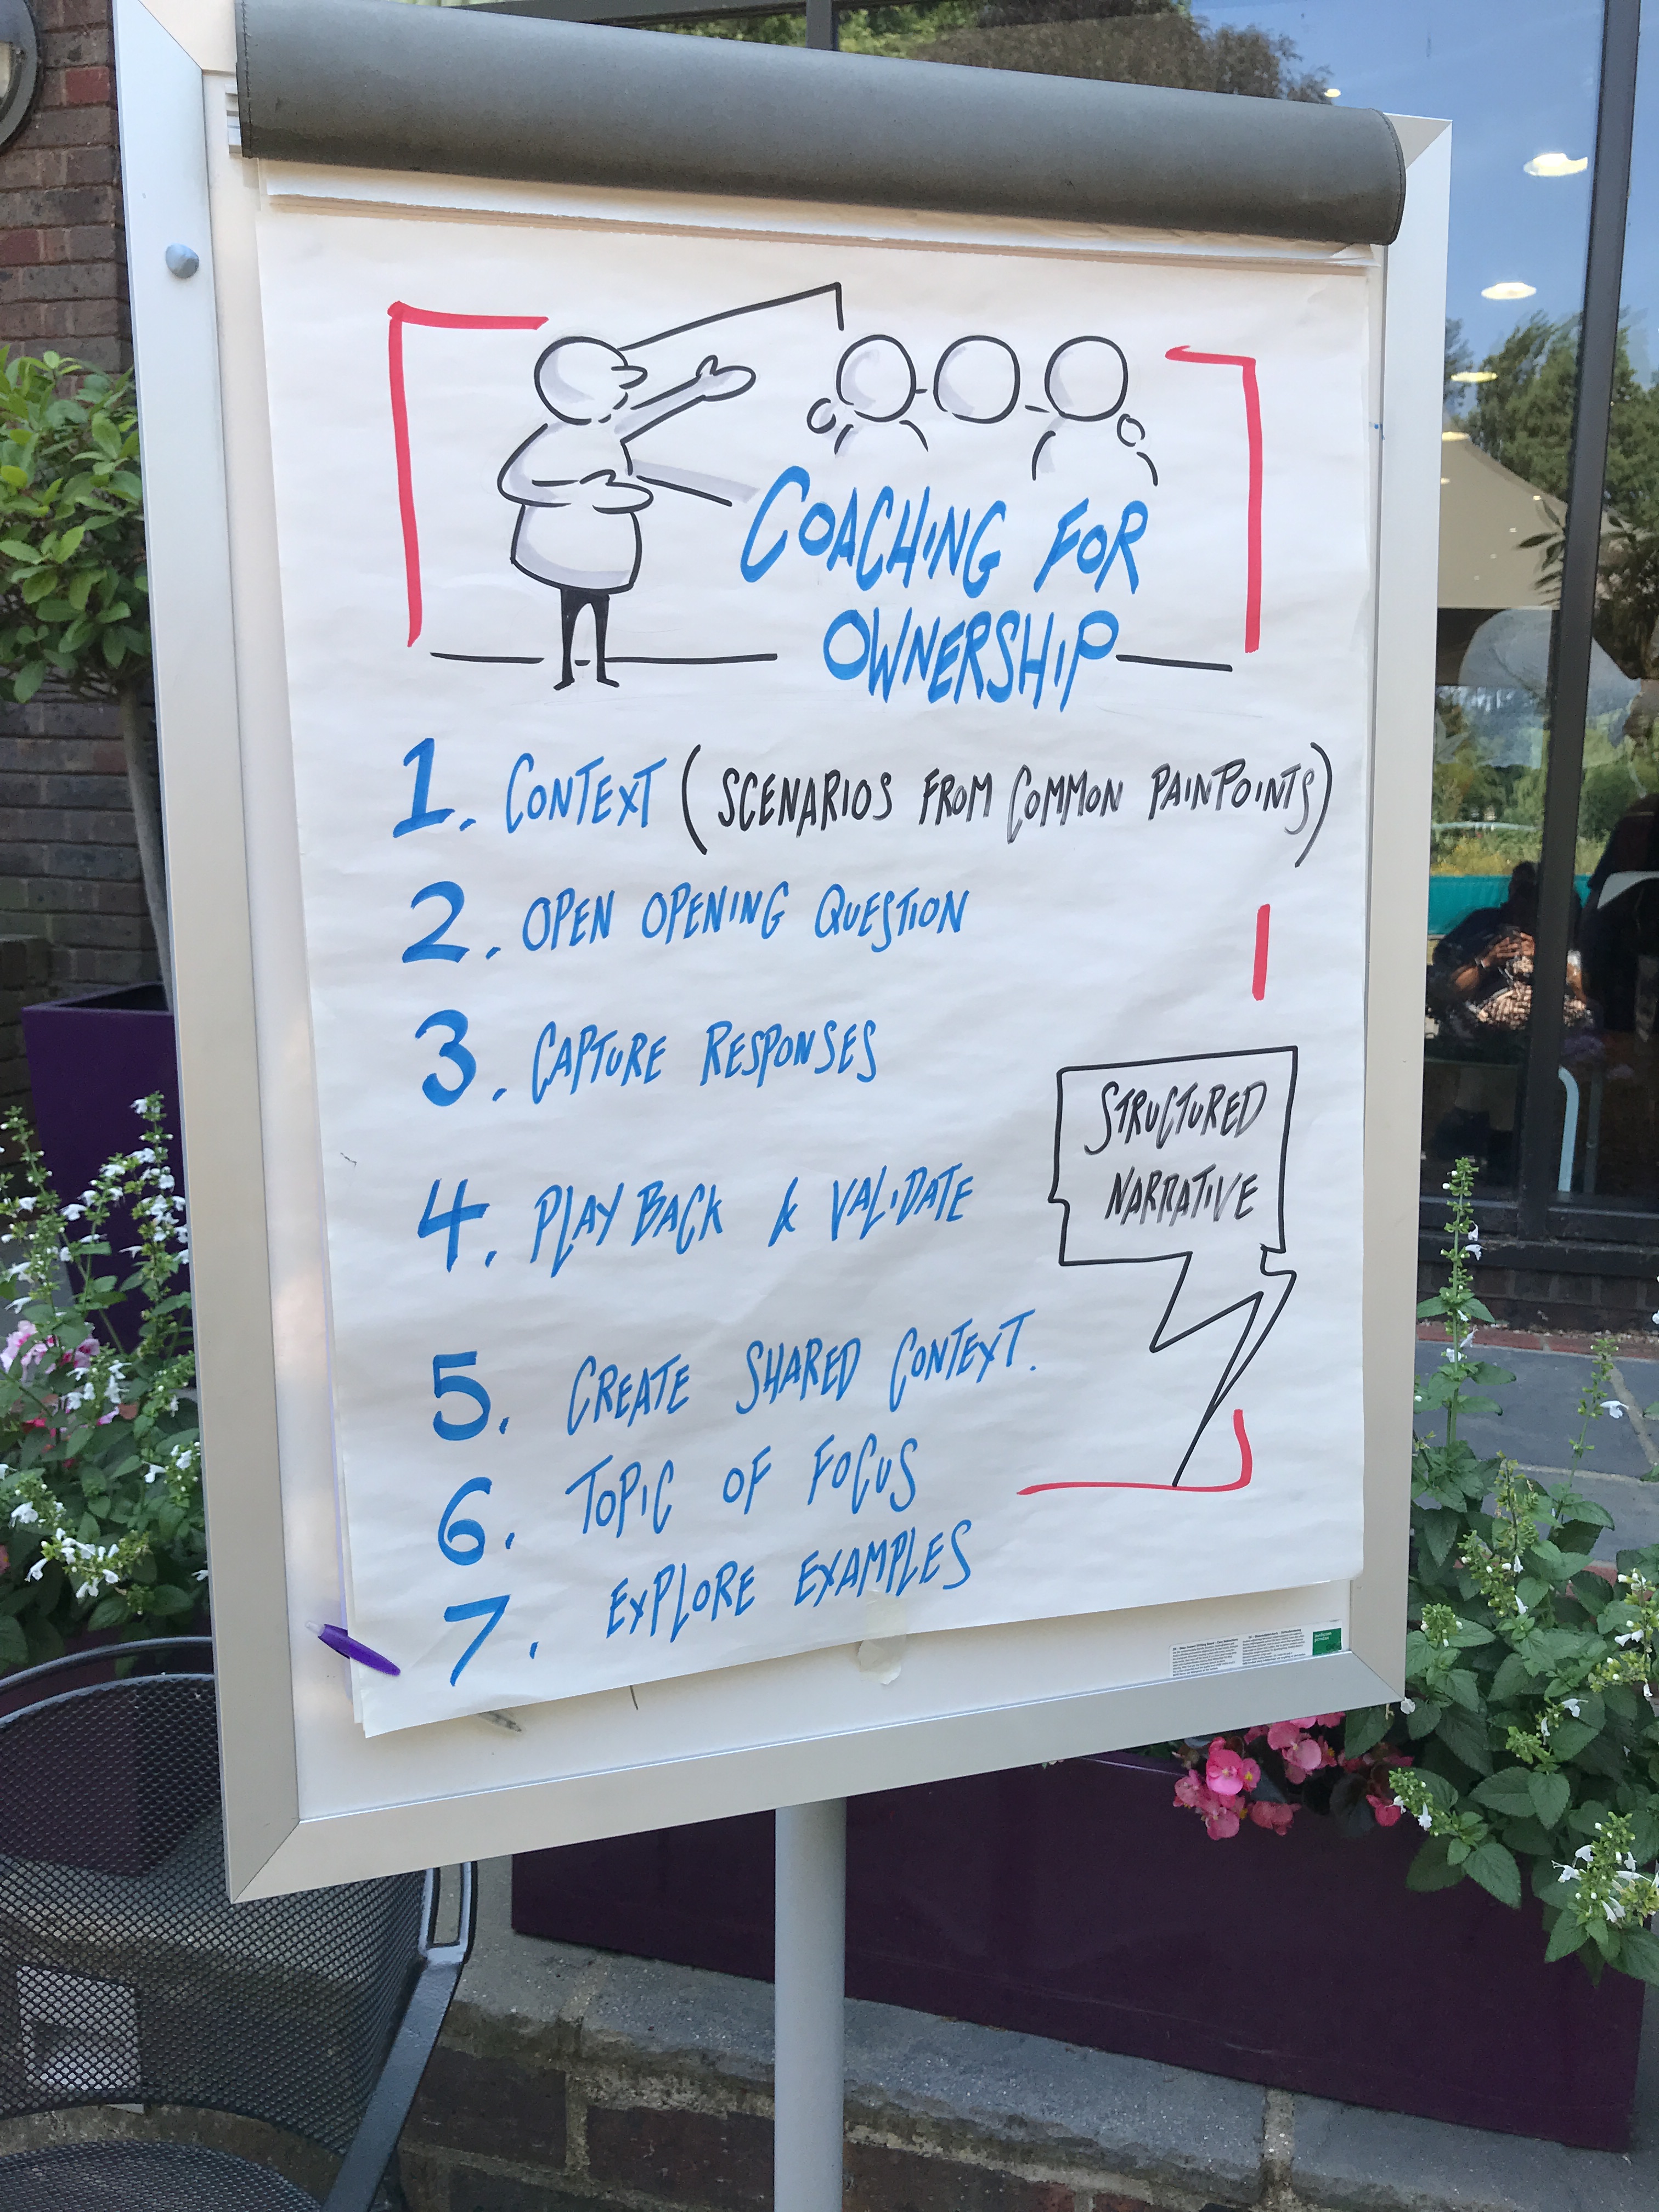 COACHING FOR
OWNERSHIP
1. CONTEXT (SCENARIOS FROM COMMON PAINPOINTS)
2. OPEN OPENING QUESTION
3. CAPTURE RESPONSES
4. PLAY BACK & VALIDATE
STRUCTURED
NARRATIVE
5. CREATE SHARED CONTEXT.
6. TOPIC OF FOCUS
7. EXPLORE EXAMPLES